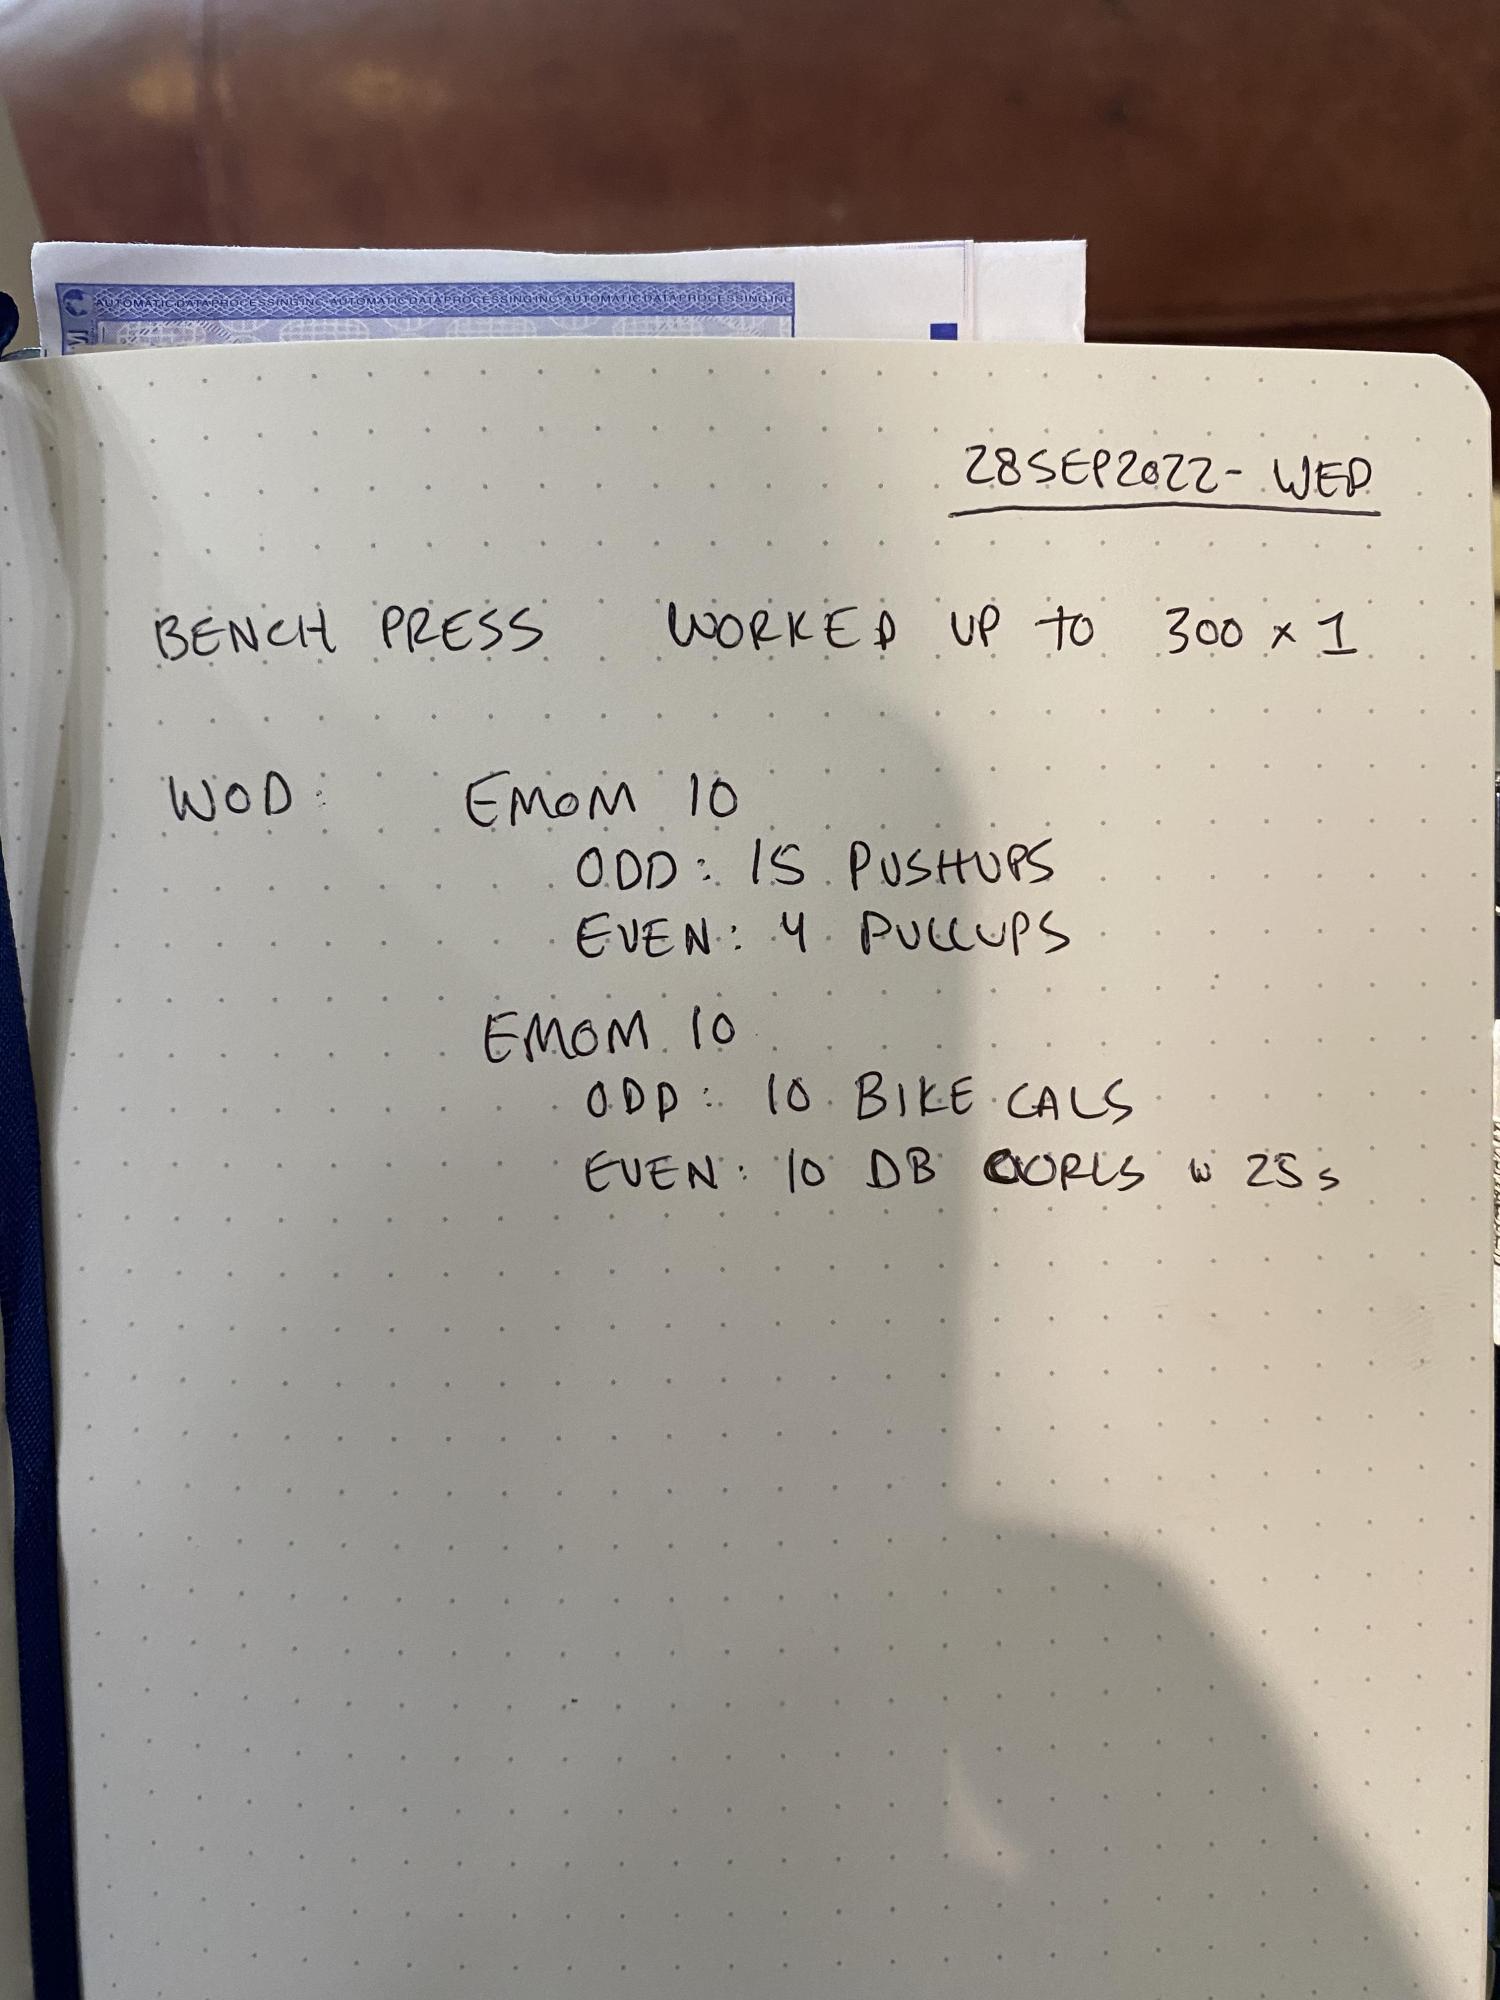 AUTOMATIC DATA PROCESSING INC. AUTOMATIC DATA PROCESSING INC. AUTOMATIC DATA PROCESSING INC
28SEP2022 - WED
BENCH PRESS WORKED UP TO 300 x 1
WOD: EMOM 10
ODD: 15 PUSHUPS
EVEN: 4 PULLUPS
EMOM 10
ODD: 10 BIKE CALS
EVEN: 10 DB CURLS w 25s